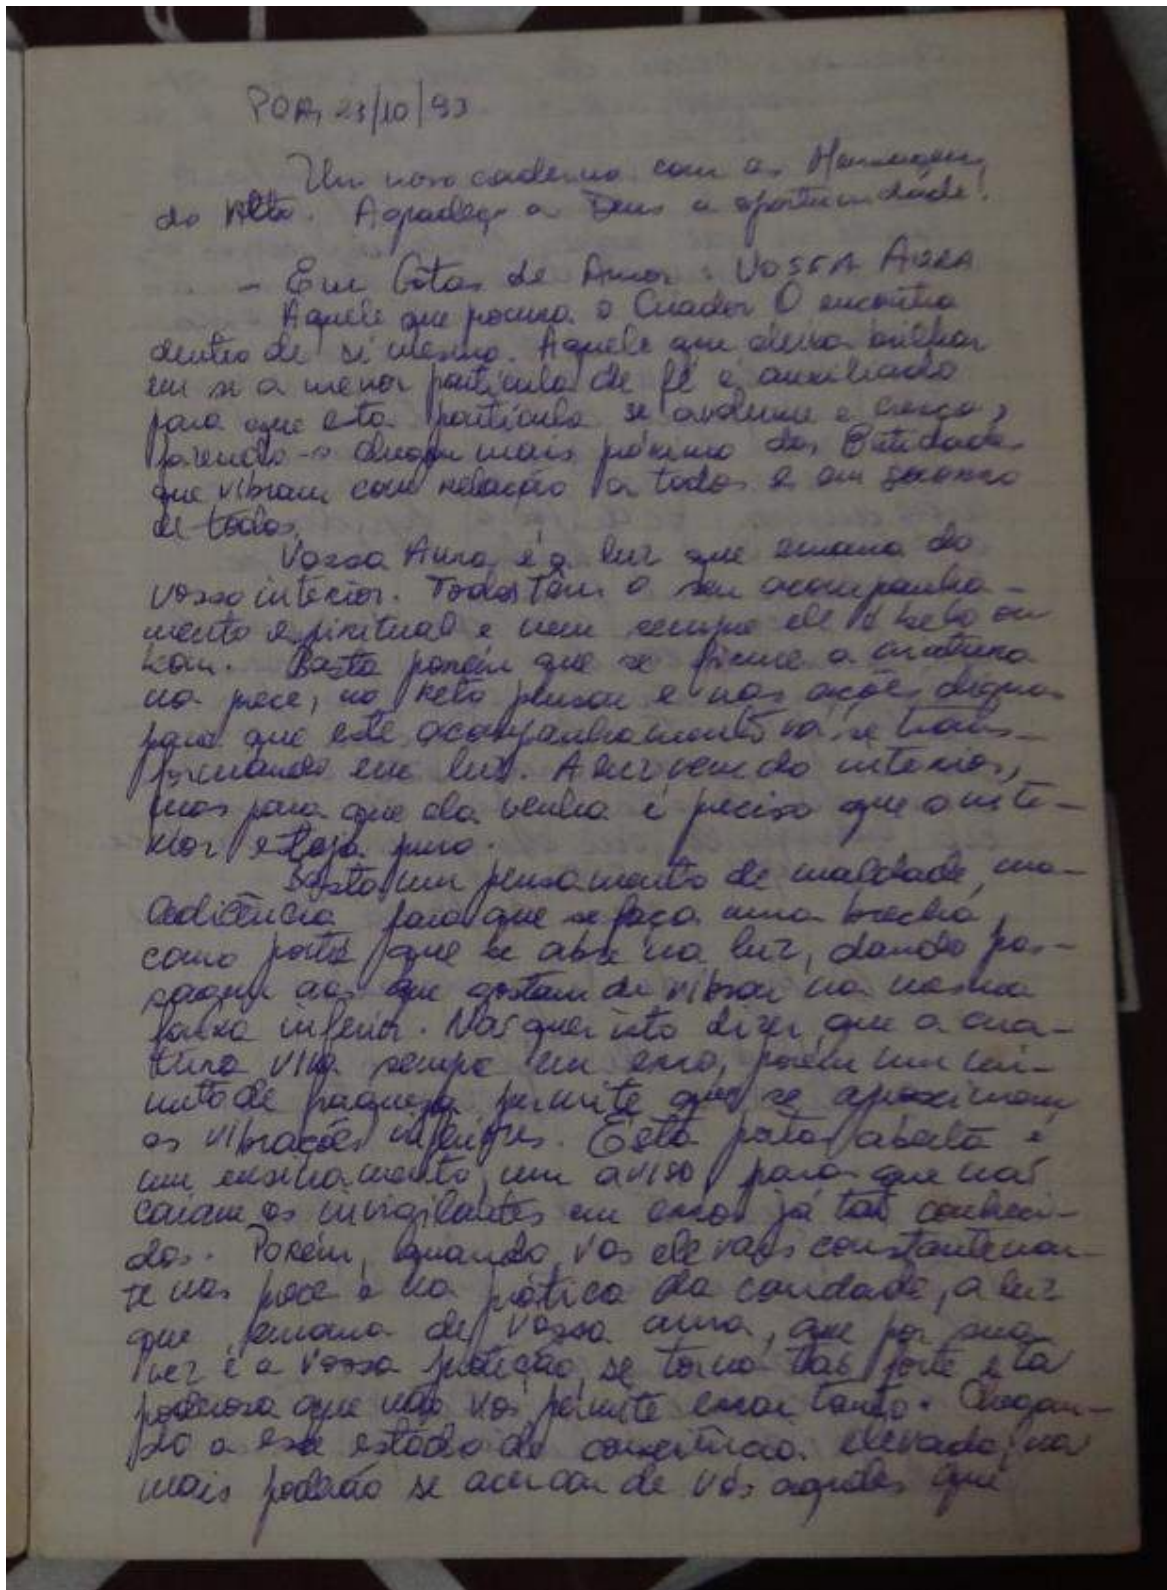 POA, 23/10/93
Um novo caderno com as Mensagens
do Alto. Agradeço a Deus a oportunidade!
- Em Gotas de Amor: VOSSA AURA
Aquele que procura o Criador O encontra
dentro de si mesmo. Aquele que deixa brilhar
em si a menor partícula de fé é auxiliado
para que esta partícula se avolume e cresça,
fazendo-o chegar mais próximo das Entidades
que vibram com relação a todos e em socorro
de todos.
Vossa Aura é a luz que emana do
vosso interior. Todos têm o seu acompanha-
mento espiritual e nem sempre ele é belo ou
bom. Basta porém que se firme a criatura
na prece, no reto pensar e nas ações dignas
para que este acompanhamento vá se trans-
formando em luz. A luz vem do interior,
mas para que ela venha é preciso que o inte-
rior esteja puro.
Basta um pensamento de maldade, ma-
ledicência para que se faça uma brecha,
como porta que se abre na luz, dando pas-
sagem aos que gostam de vibrar na mesma
faixa inferior. Não quer isto dizer que a cria-
tura viva sempre em erro, porém um mi-
nuto de fraqueza permite que se aproximem
as vibrações inferiores. Esta porta aberta é
um ensinamento, um aviso para que não
caiam os invigilantes em erros já tão conheci-
dos. Porém, quando vos elevais constantemen-
te nas preces e na prática da caridade, a luz
que emana de vossa aura, que por sua
vez é a vossa proteção, se torna tão forte e tão
poderosa que não vos permite errar tanto. Chegan-
do a esse estado de consciência elevado, não
mais poderão se acercar de vós aqueles que